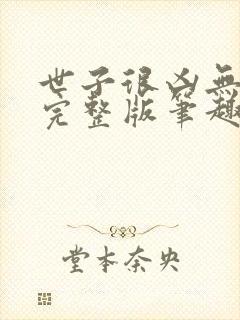 世子很凶無
完整版筆趣
堂本奈央